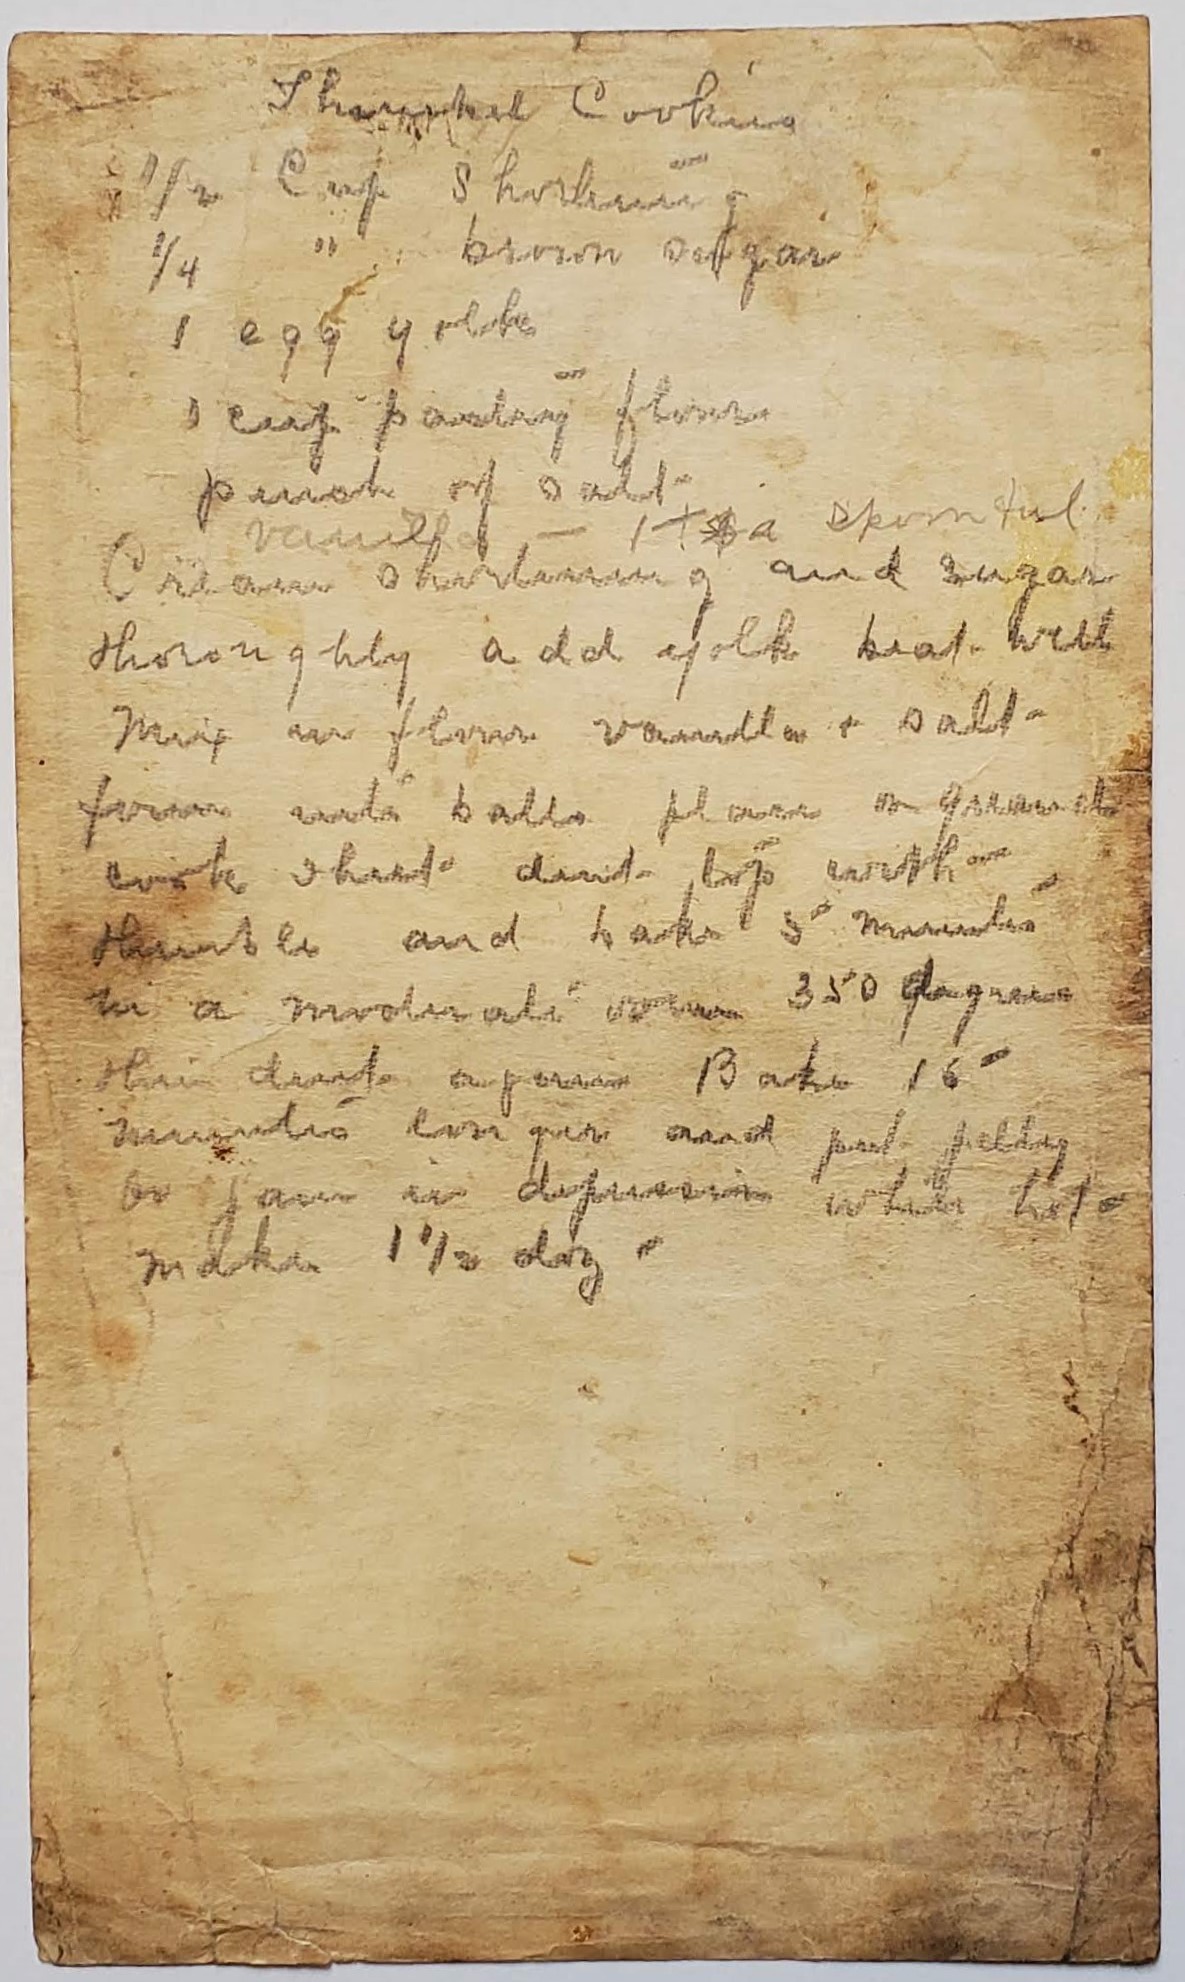 Cookies
1/2 Cup Shortening
1/4 " brown sugar
1 egg yolk
1 cup pastry flour
pinch of salt
vanilla – 1 tea spoonful
Cream shortening and sugar
thoroughly add yolk beat well
Mix in flour vanilla + salt
form into balls place on greased
cook sheet dent top with
thimble and bake 5 minutes
in a moderate oven 350 degrees
then dent again Bake 15
minutes longer and put jelly
or jam in depression while hot
makes 1 1/2 doz